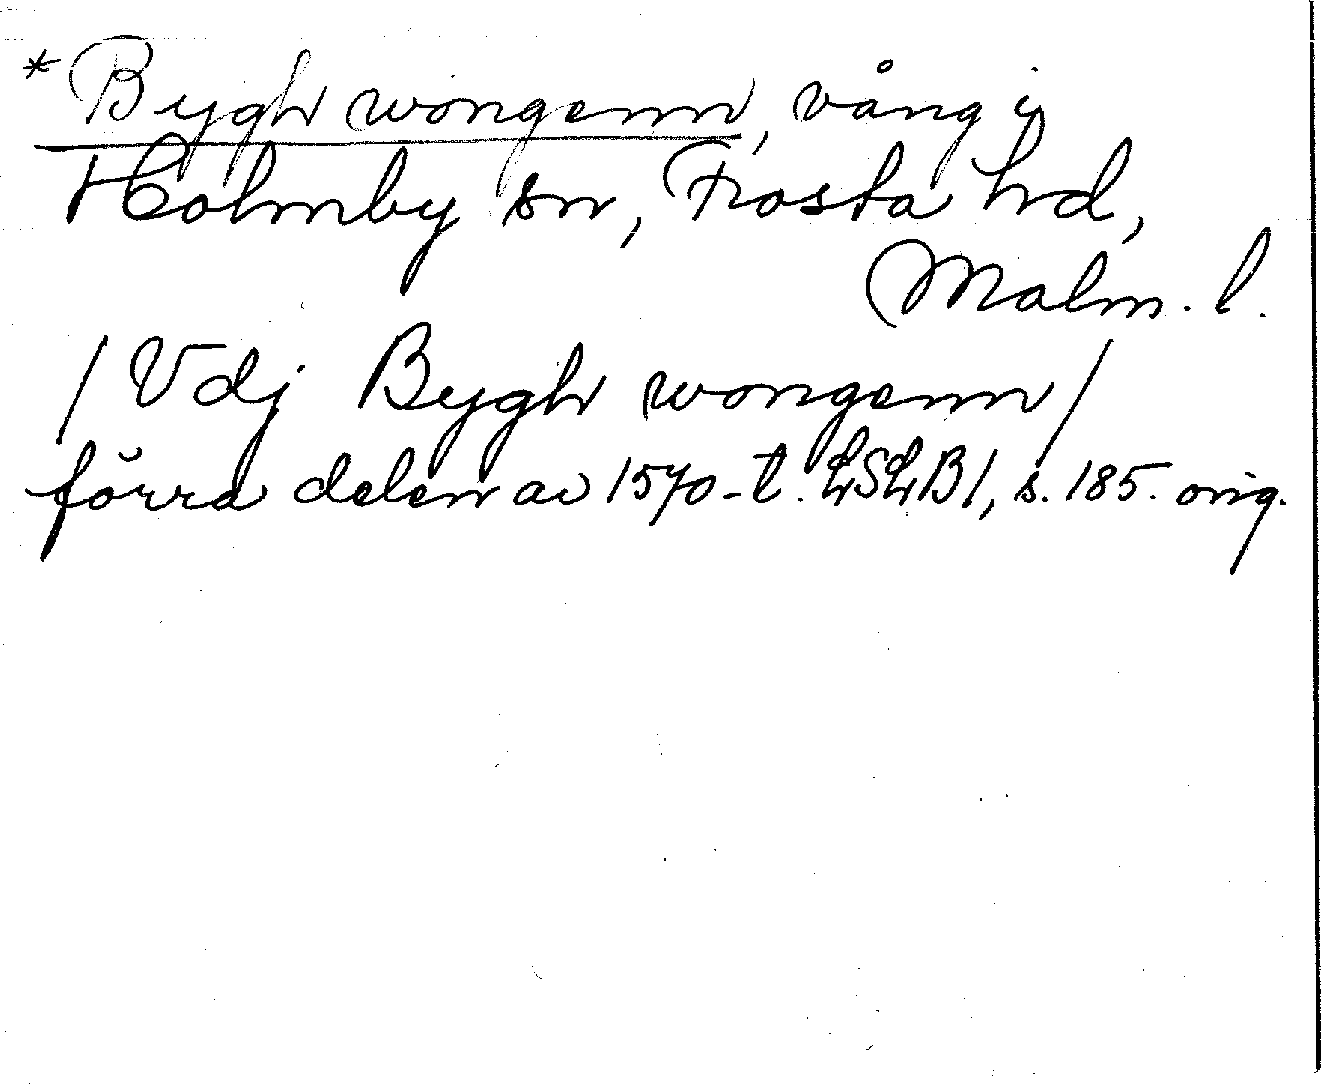 * Bygh wongenn, vång i
Holmby sn, Frosta hd,
Malm. l.
/ Vdj Bygh wongenn /
förra delen av 1570-t. LSLB1, s. 185. orig.